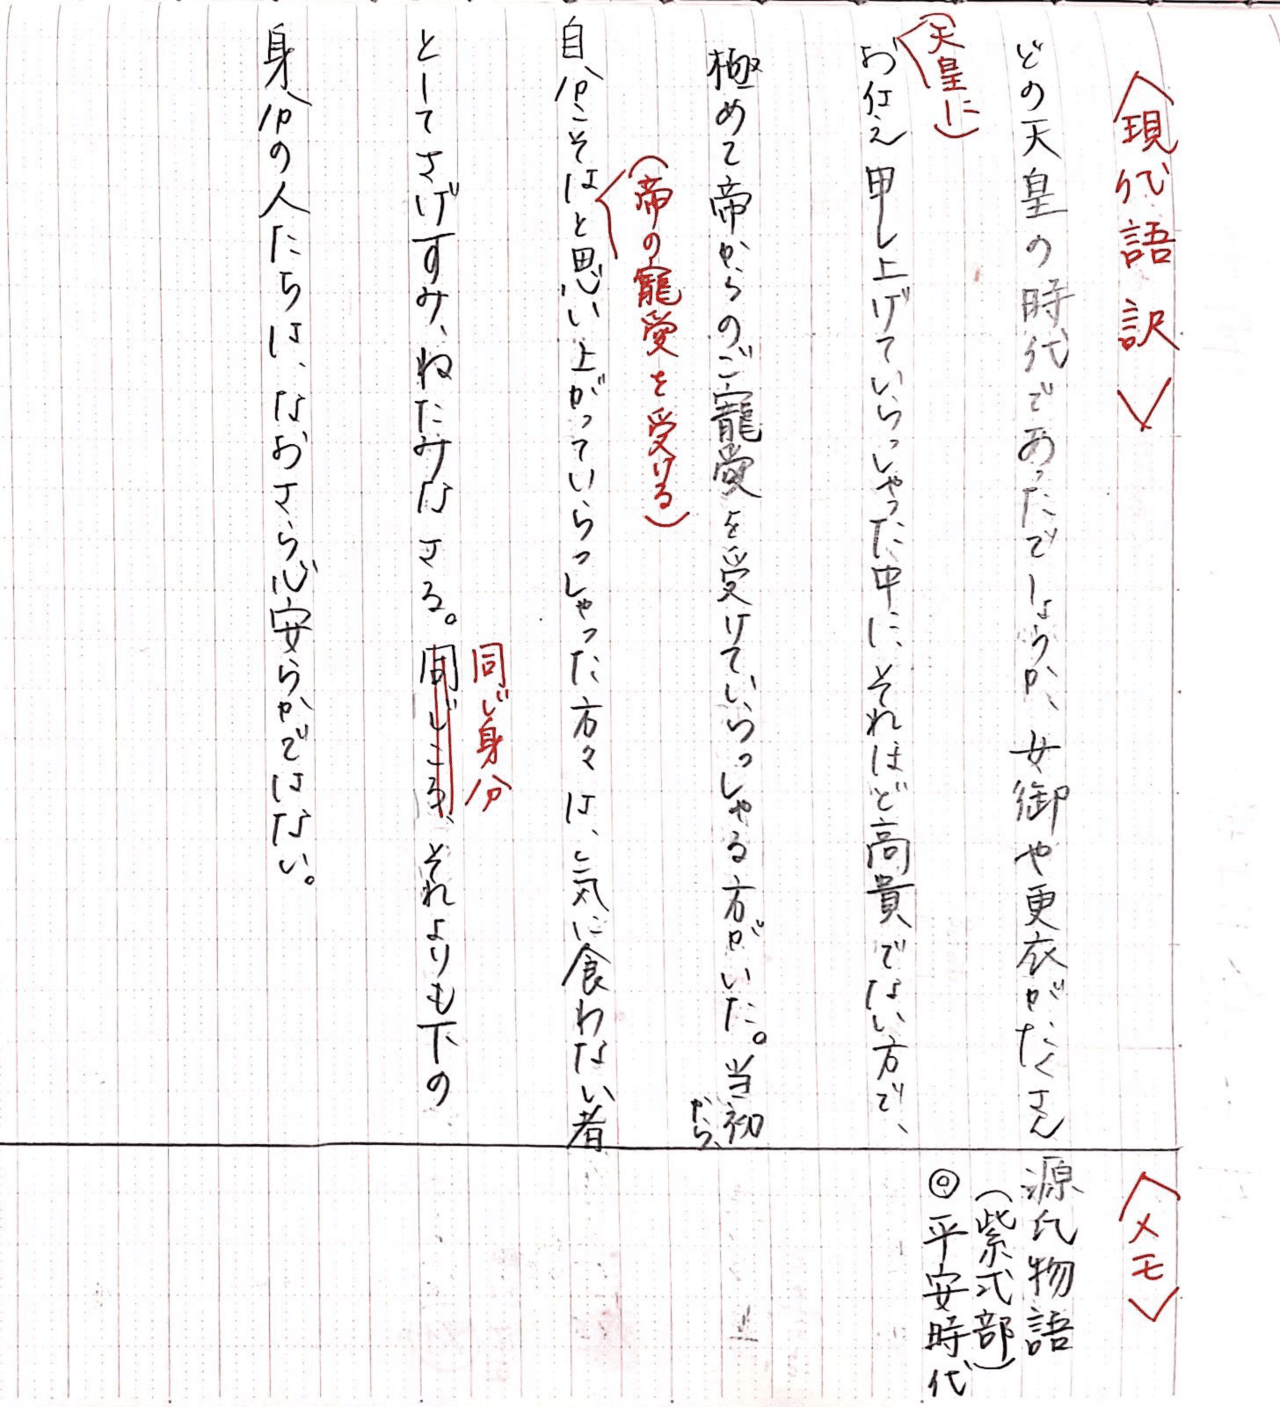 〈現代語訳〉
どの天皇の時代であったでしょうか、女御や更衣がたくさん
(天皇に)
お仕え申し上げていらっしゃった中に、それほど高貴でない方で、
極めて帝からのご寵愛を受けていらっしゃる方がいた。当初
から、
(帝の寵愛を受ける)
自分こそはと思い上がっていらっしゃった方々は、気に食わない者
としてさげすみ、ねたみなさる。同じころ、それよりも下の
同じ身分
身分の人たちは、なおさら心安らかではない。
〈メモ〉
源氏物語
(紫式部)
◎平安時代